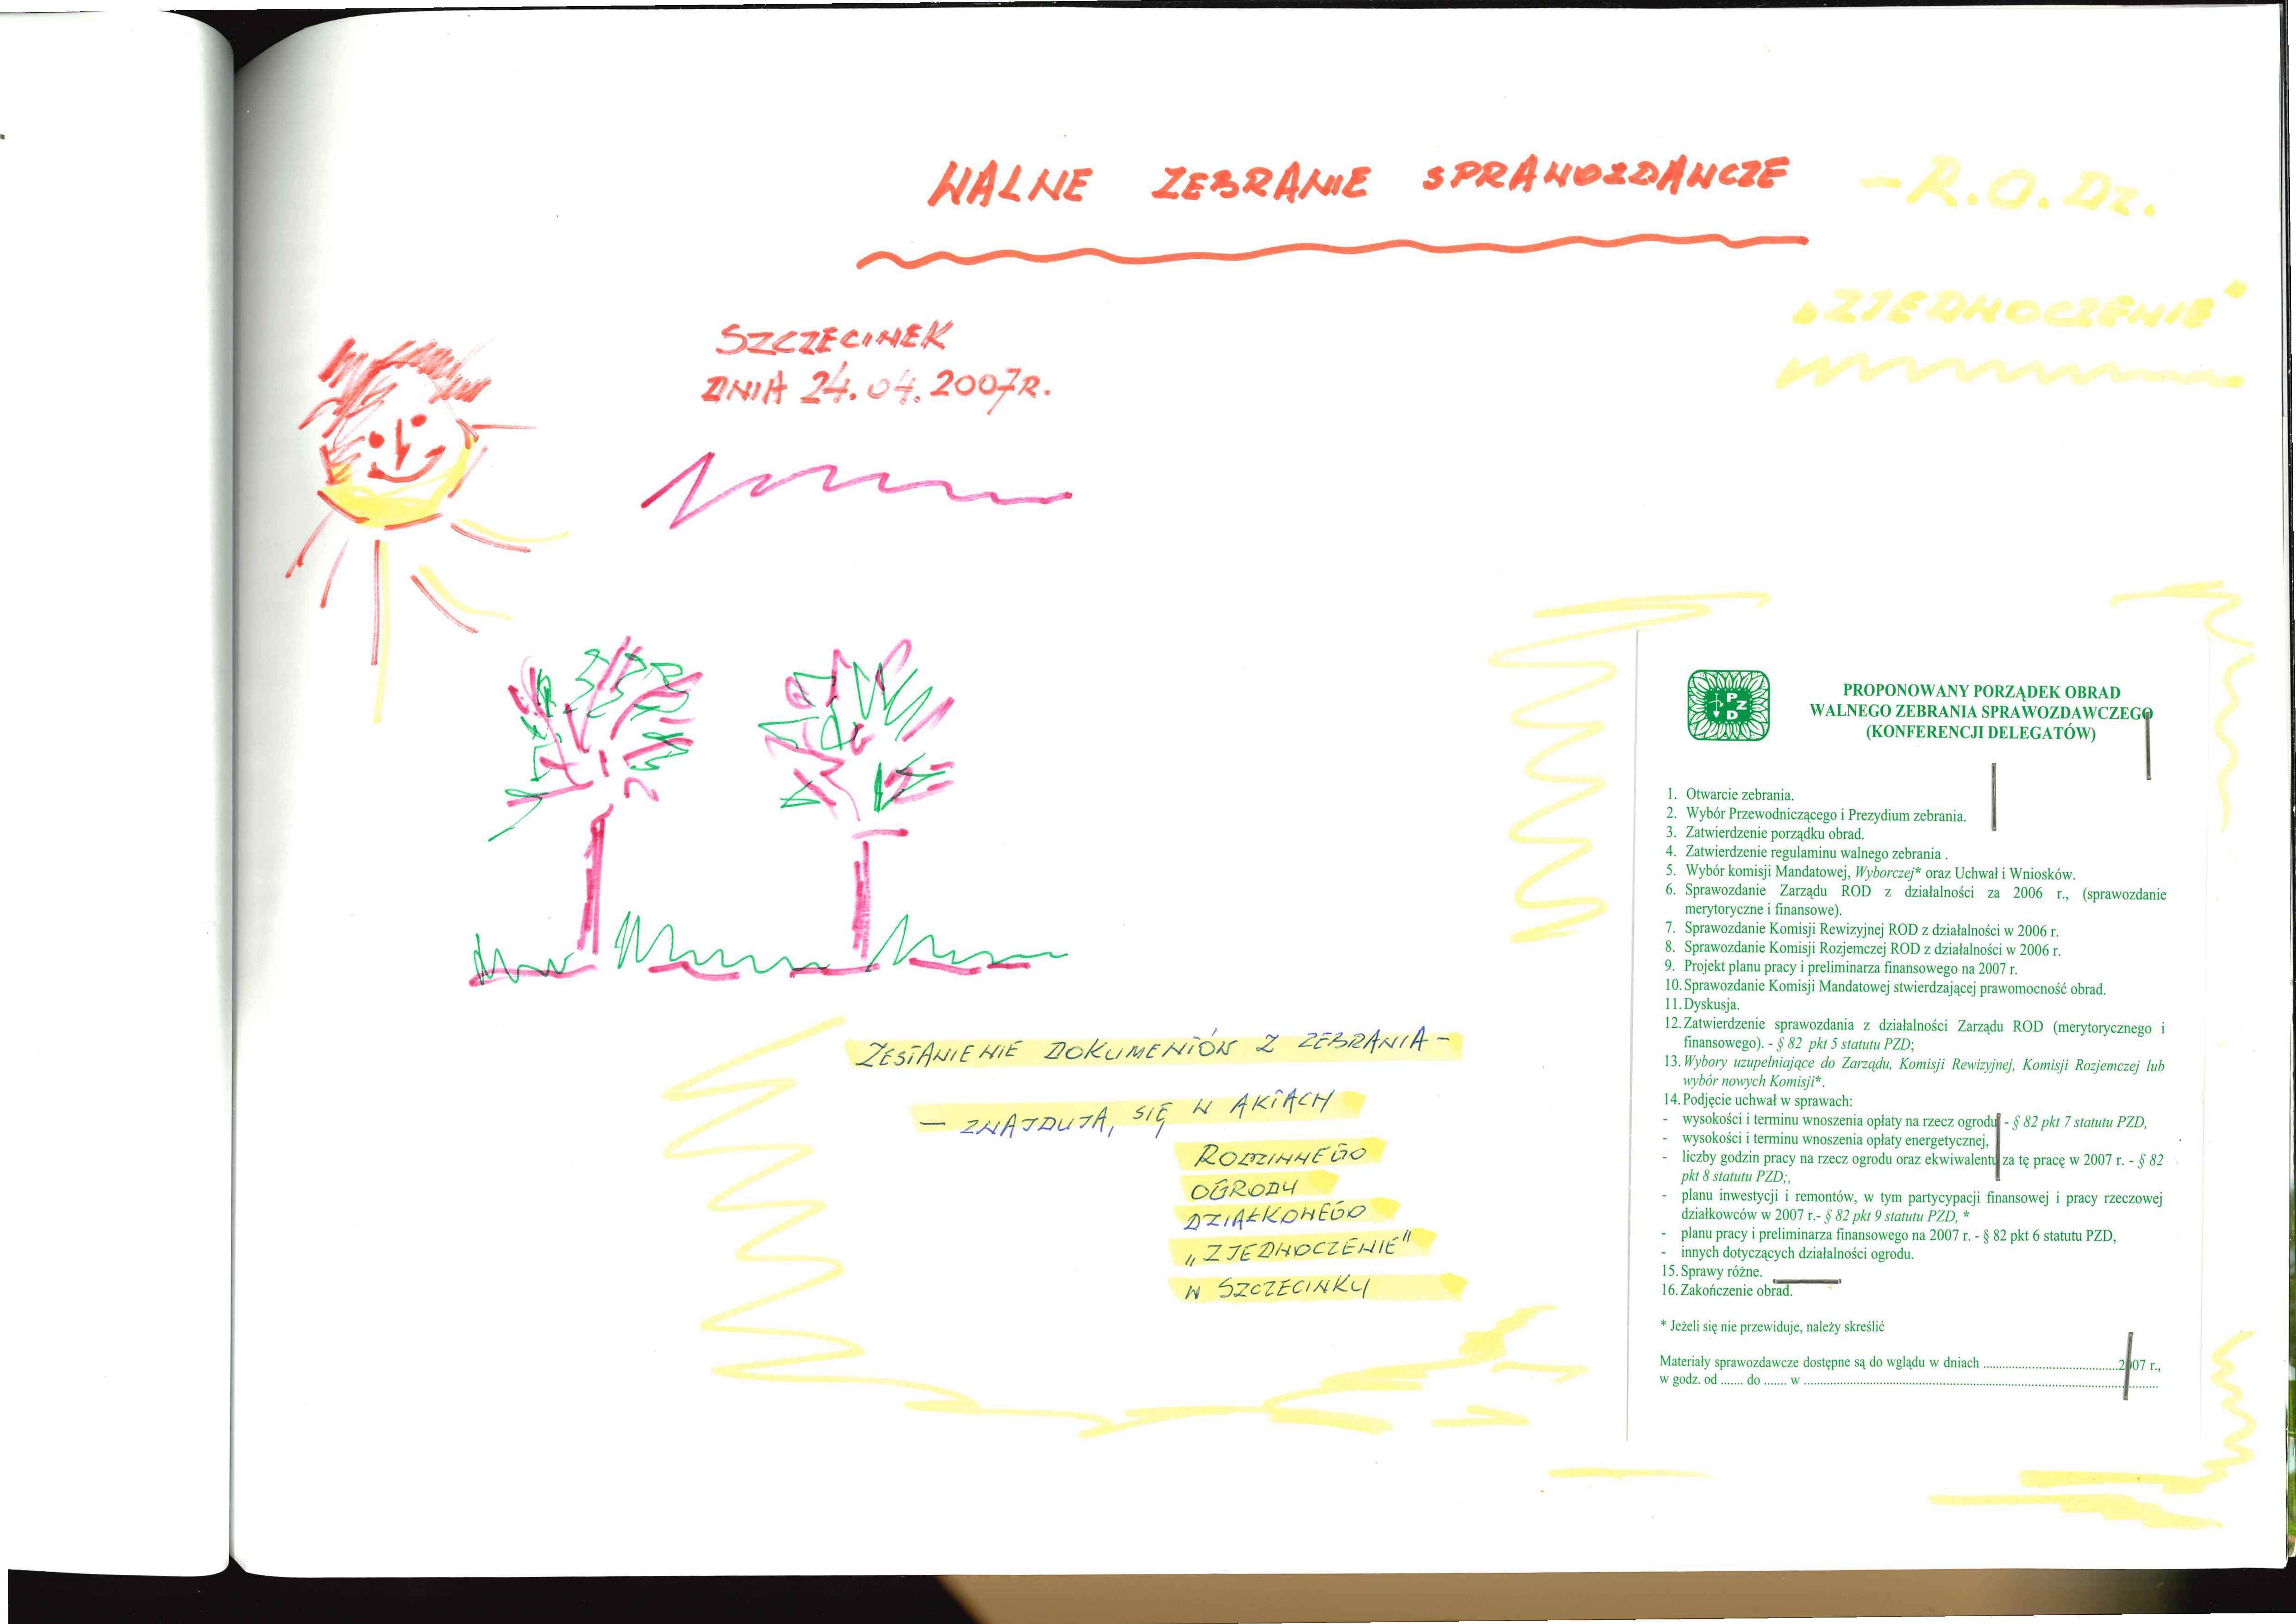 WALNE ZEBRANIE SPRAWOZDAWCZE - R.O.Dz.
„ZJEDNOCZENIE"
SZCZECINEK
DNIA 24.04.2007R.
ZESTAWIENIE DOKUMENTÓW Z ZEBRANIA -
- ZNAJDUJĄ SIĘ W AKTACH
RODZINNEGO
OGRODU
DZIAŁKOWEGO
„ZJEDNOCZENIE"
W SZCZECINKU
PZD
PROPONOWANY PORZĄDEK OBRAD
WALNEGO ZEBRANIA SPRAWOZDAWCZEGO
(KONFERENCJI DELEGATÓW)
1. Otwarcie zebrania.
2. Wybór Przewodniczącego i Prezydium zebrania.
3. Zatwierdzenie porządku obrad.
4. Zatwierdzenie regulaminu walnego zebrania .
5. Wybór komisji Mandatowej, Wyborczej* oraz Uchwał i Wniosków.
6. Sprawozdanie Zarządu ROD z działalności za 2006 r., (sprawozdanie
merytoryczne i finansowe).
7. Sprawozdanie Komisji Rewizyjnej ROD z działalności w 2006 r.
8. Sprawozdanie Komisji Rozjemczej ROD z działalności w 2006 r.
9. Projekt planu pracy i preliminarza finansowego na 2007 r.
10. Sprawozdanie Komisji Mandatowej stwierdzającej prawomocność obrad.
11. Dyskusja.
12. Zatwierdzenie sprawozdania z działalności Zarządu ROD (merytorycznego i
finansowego). - § 82 pkt 5 statutu PZD;
13. Wybory uzupełniające do Zarządu, Komisji Rewizyjnej, Komisji Rozjemczej lub
wybór nowych Komisji*.
14. Podjęcie uchwał w sprawach:
- wysokości i terminu wnoszenia opłaty na rzecz ogrodu - § 82 pkt 7 statutu PZD,
- wysokości i terminu wnoszenia opłaty energetycznej,
- liczby godzin pracy na rzecz ogrodu oraz ekwiwalentu za tę pracę w 2007 r. - § 82
pkt 8 statutu PZD;,
- planu inwestycji i remontów, w tym partycypacji finansowej i pracy rzeczowej
działkowców w 2007 r.- § 82 pkt 9 statutu PZD, *
- planu pracy i preliminarza finansowego na 2007 r. - § 82 pkt 6 statutu PZD,
- innych dotyczących działalności ogrodu.
15. Sprawy różne.
16. Zakończenie obrad.
* Jeżeli się nie przewiduje, należy skreślić
Materiały sprawozdawcze dostępne są do wglądu w dniach ......................................2007 r.,
w godz. od ....... do ....... w ....................................................................................................